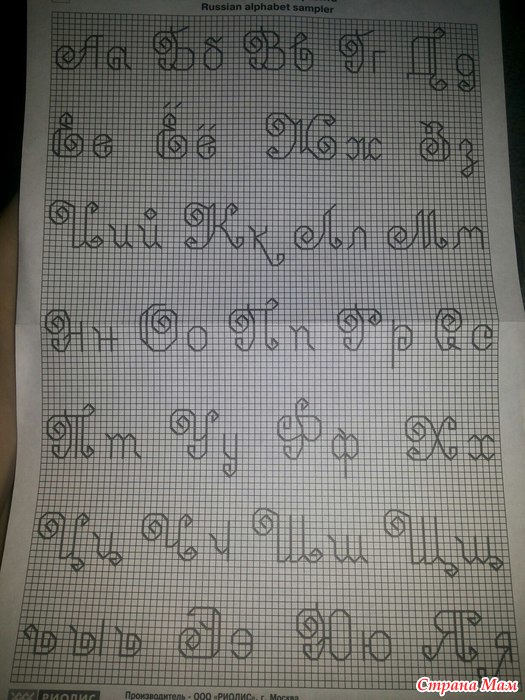 Russian alphabet sampler
Аа Бб Вв Гг Дд
Ее Ёё Жж Зз
Иий Кк Лл Мм
Нн Оо Пп Рр Сс
Тт Уу Фф Хх
Цц Чч Шш Щщ
ъыь Ээ Юю Яя
РИОЛИС Производитель - ООО «РИОЛИС», г. Москва
Страна Мам